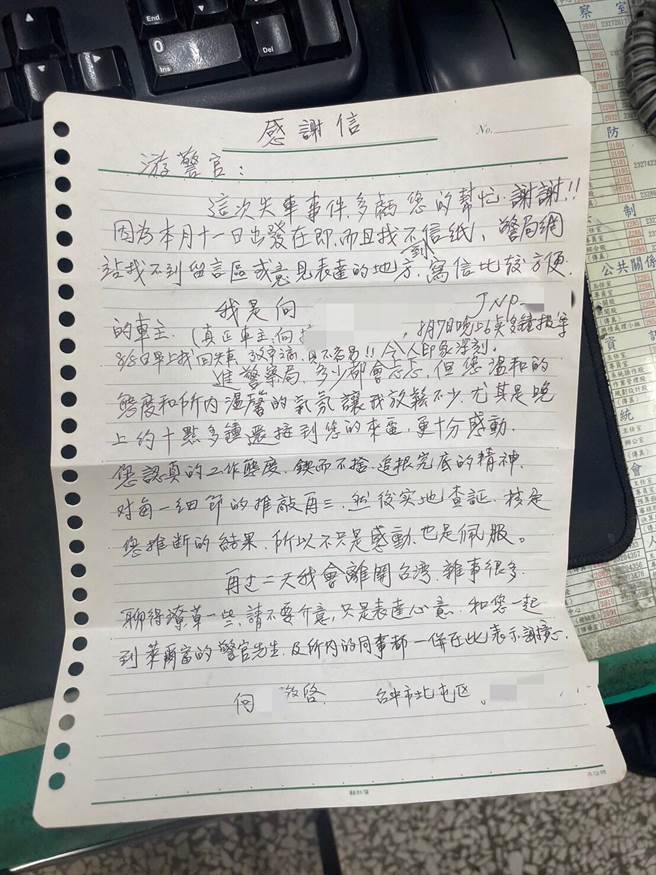 End
Del
0
Ins
感謝信
No.
游警官：
這次失車事件，多虧您的幫忙，謝謝!!
因為本月十一日出發在即，而且找不到信紙，警局網
站找不到留言區或意見表達的地方，寫信比較方便．
我是向 JNP-
的車主．(真正車主：向 ，8月7日晚上6點多鐘報案
8/8日早上找回失車 效率高，真不容易!! 令人印象深刻．
進警察局，多少都會忐忑，但您溫和的
態度和所內溫馨的氣氛讓我放鬆不少，尤其是晚
上約十點多鐘還接到您的來電，更十分感動．
您認真的工作態度，鍥而不捨，追根究底的精神．
对每一細節的推敲再三，然後实地查証，核是
您推斷的結果．所以不只是感動，也是佩服。
再过二天我會離開台湾，雜事很多．
聊得潦草一些，請不要介意，只是表達心意．和您一起
到萊爾富的警官先生，及所內的同事都一併在此表示謝意．
啓． 台中市北屯区
公共關係